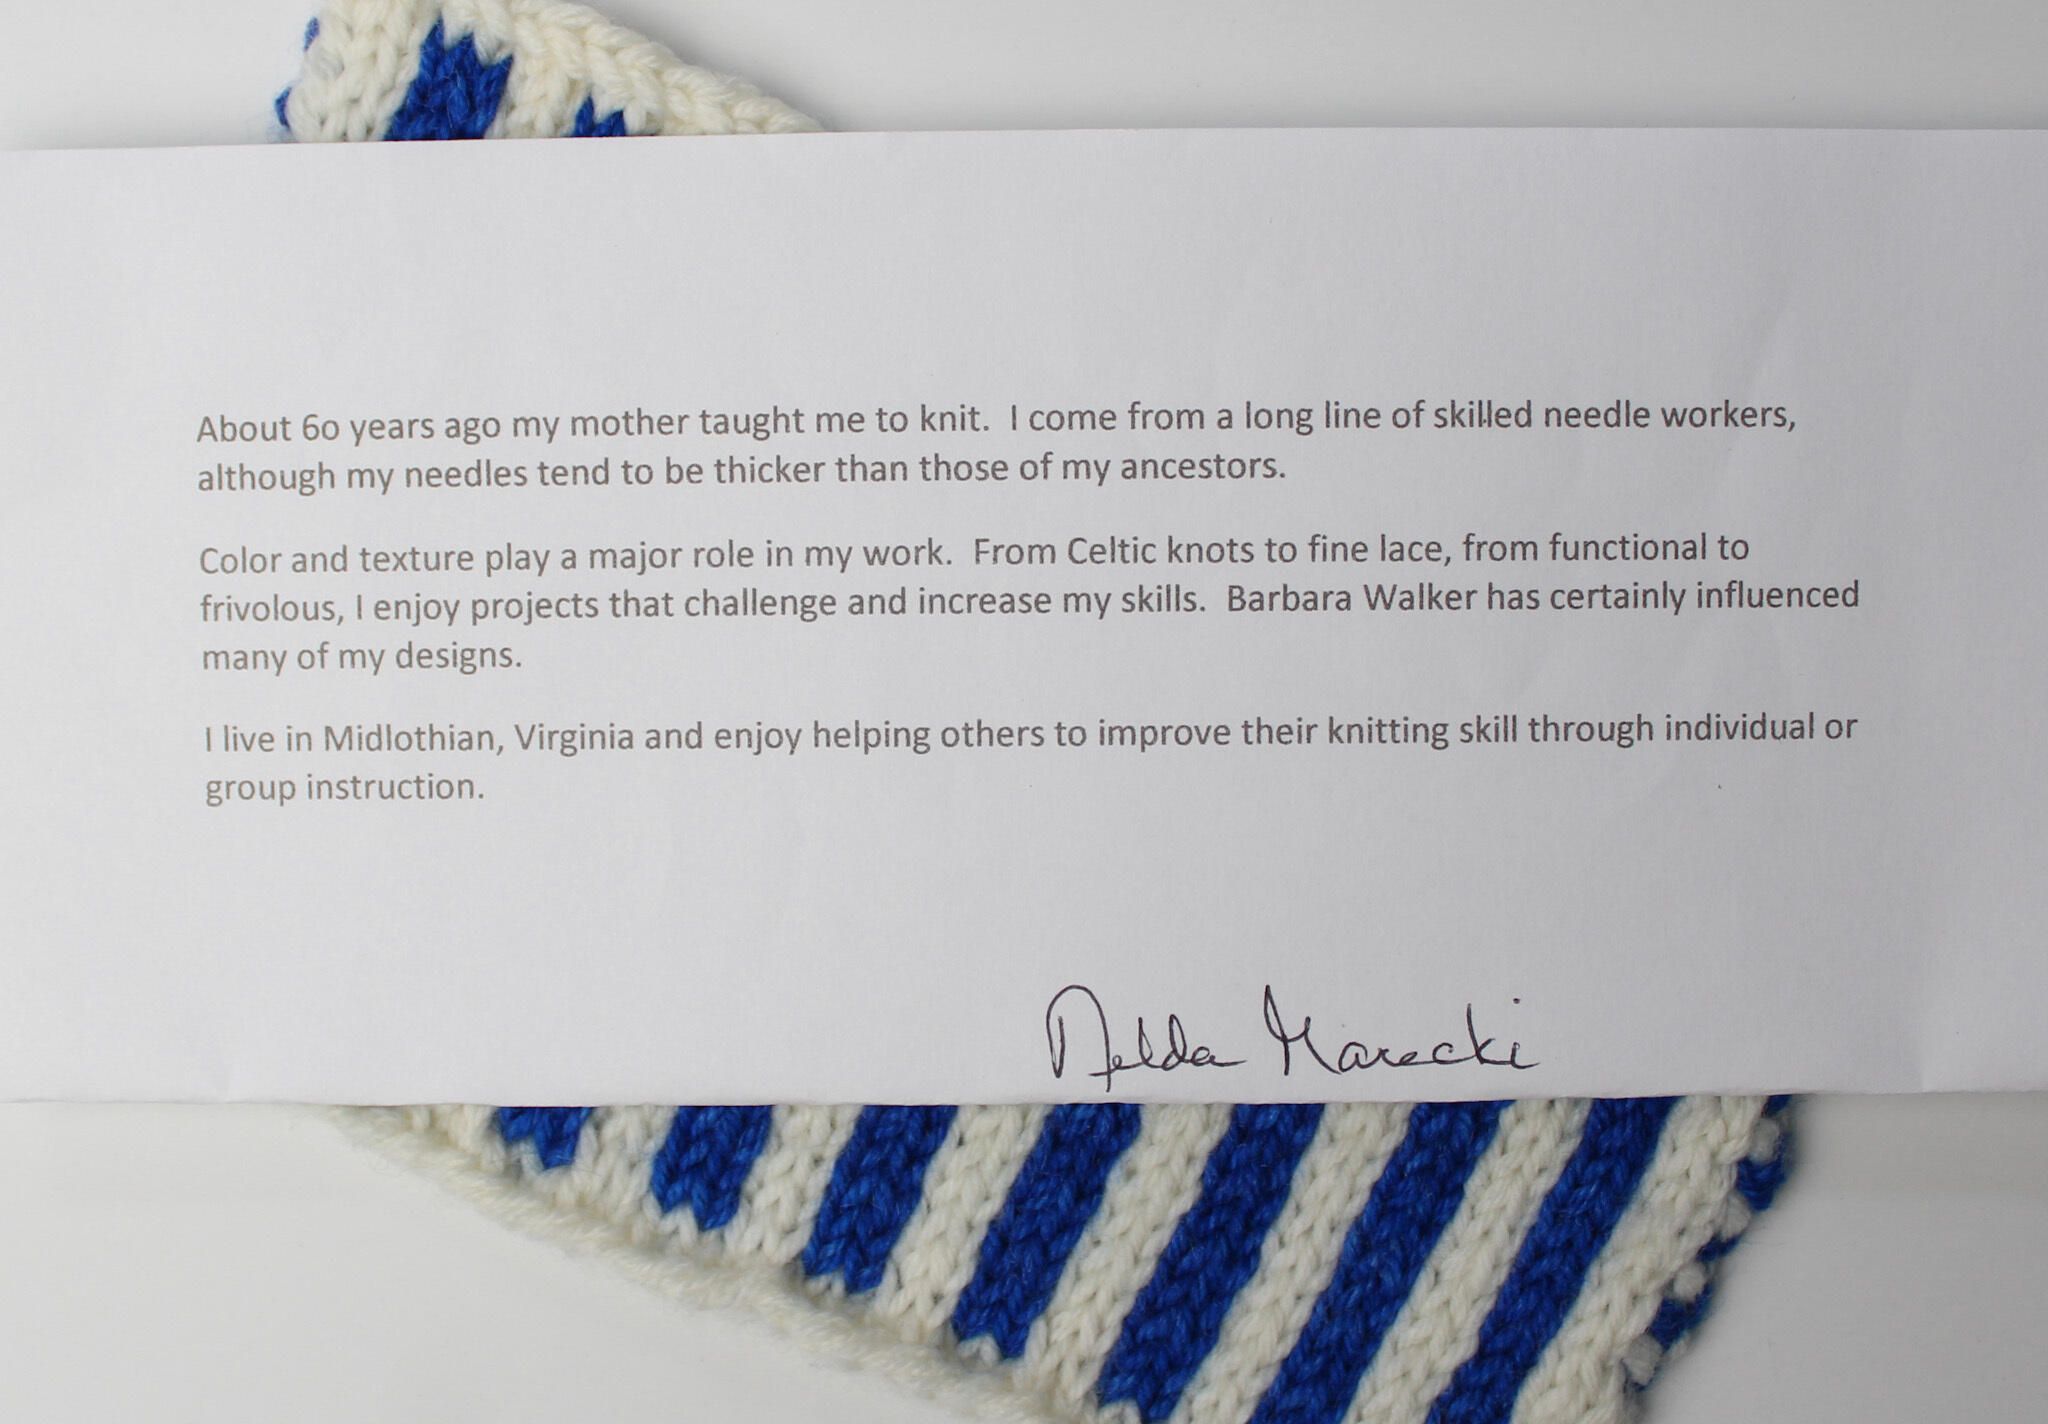 About 60 years ago my mother taught me to knit.  I come from a long line of skilled needle workers,
although my needles tend to be thicker than those of my ancestors.
Color and texture play a major role in my work.  From Celtic knots to fine lace, from functional to
frivolous, I enjoy projects that challenge and increase my skills.  Barbara Walker has certainly influenced
many of my designs.
I live in Midlothian, Virginia and enjoy helping others to improve their knitting skill through individual or
group instruction.
Nelda Marecki